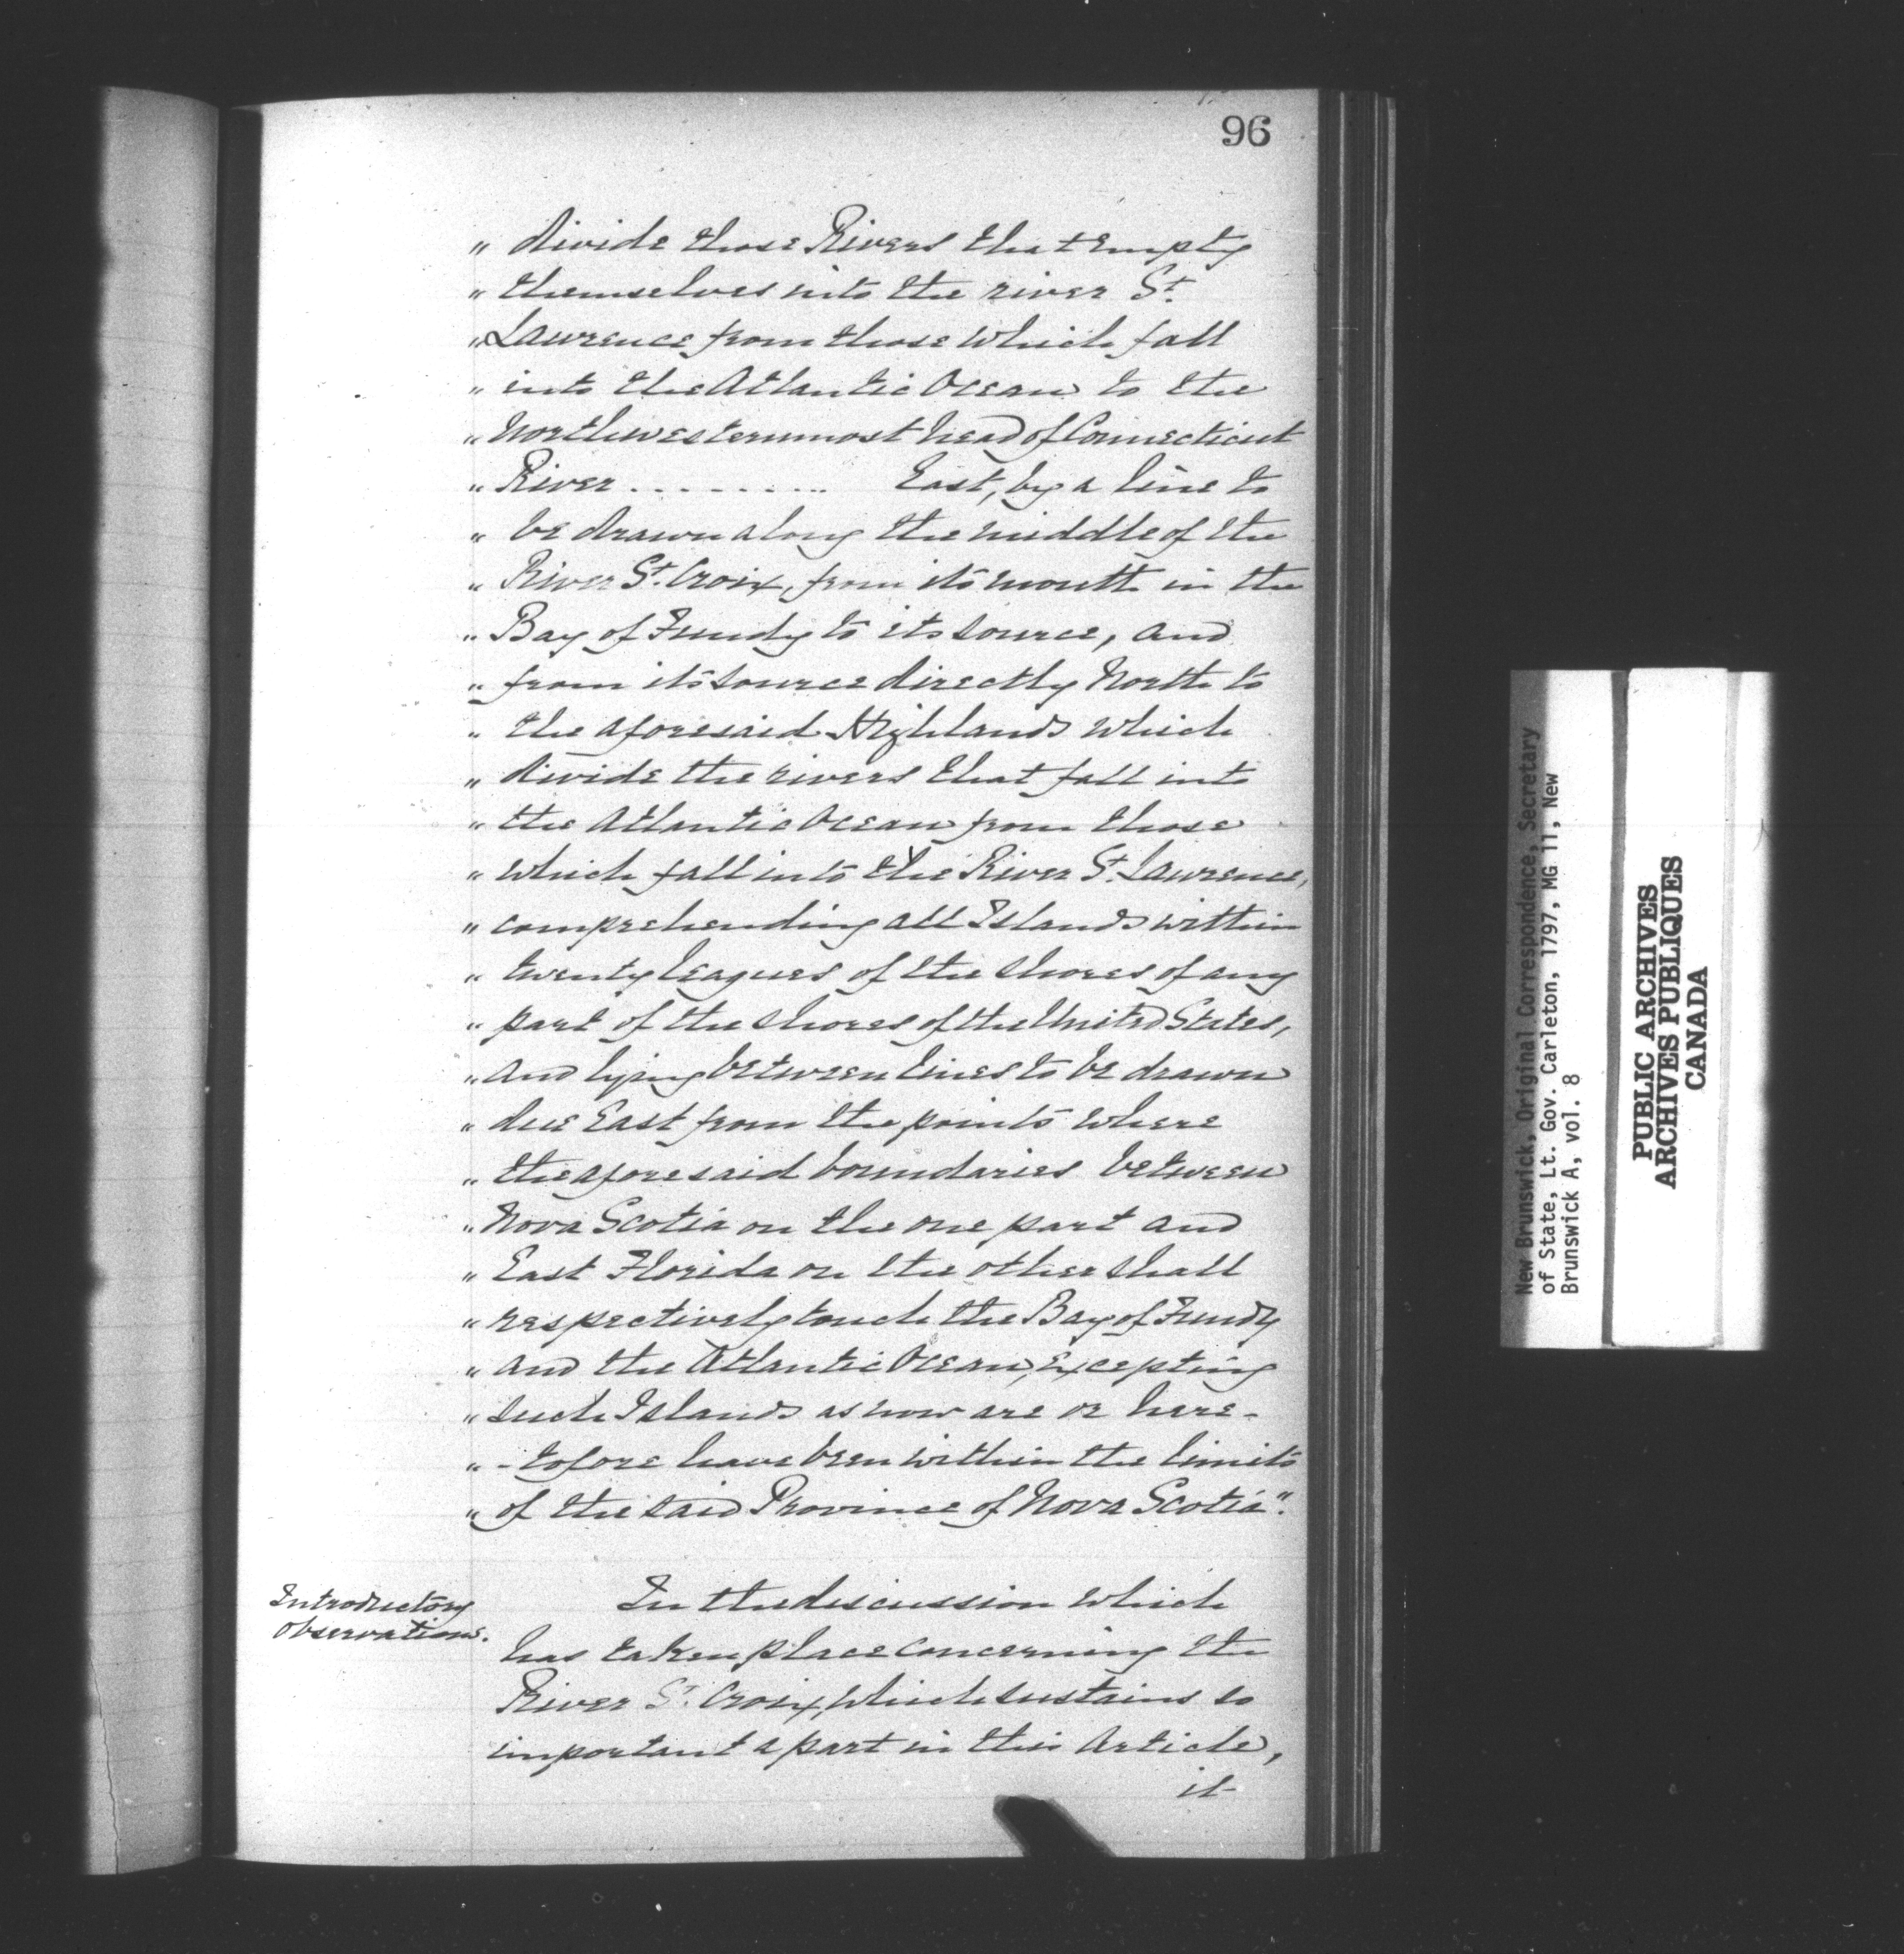 96
„ divide those Rivers that empty
„ themselves into the river St.
„ Lawrence from those which fall
„ into the Atlantic Ocean to the
„ Northwesternmost head of Connecticut
„ River .......... East, by a line to
„ be drawn along the middle of the
„ River St. Croix, from its mouth in the
„ Bay of Fundy to its source, and
„ from its source directly North to
„ the aforesaid Highlands which
„ divide the rivers that fall into
„ the Atlantic Ocean from those
„ which fall into the River St. Lawrence,
„ comprehending all Islands within
„ twenty leagues of the shores of any
„ part of the shores of the United States,
„ and lying between lines to be drawn
„ due East from the points where
„ the aforesaid boundaries between
„ Nova Scotia on the one part and
„ East Florida on the other shall
„ respectively touch the Bay of Fundy
„ and the Atlantic Ocean, Excepting
„ such Islands as now are or here-
„ -tofore have been within the limits
„ of the said Province of Nova Scotia".
Introductory
Observations.
In the discussion which
has taken place concerning the
River St. Croix, which sustains so
important a part in this Article,
it
New Brunswick, Original Correspondence, Secretary
of State, Lt. Gov. Carleton, 1797, MG 11, New
Brunswick A, vol. 8
PUBLIC ARCHIVES
ARCHIVES PUBLIQUES
CANADA